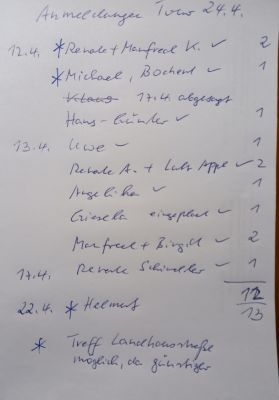 Anmeldungen Tour 24.4.
12.4. * Renate + Manfred K. ✓ 2
* Michael, Bochert ✓ 1
Klaus 17.4. abgesagt
Hans-Günter ✓ 1
13.4. Uwe ✓ 1
Renate A. + Lutz Appe ✓ 2
Angelika ✓ 1
Gisela eingeplant ✓ 1
Manfred + Birgitt ✓ 2
17.4. Renate Schindler ✓ 1
12
22.4. * Helmut 13
* Treff Landhausstraße
möglich, da günstiger